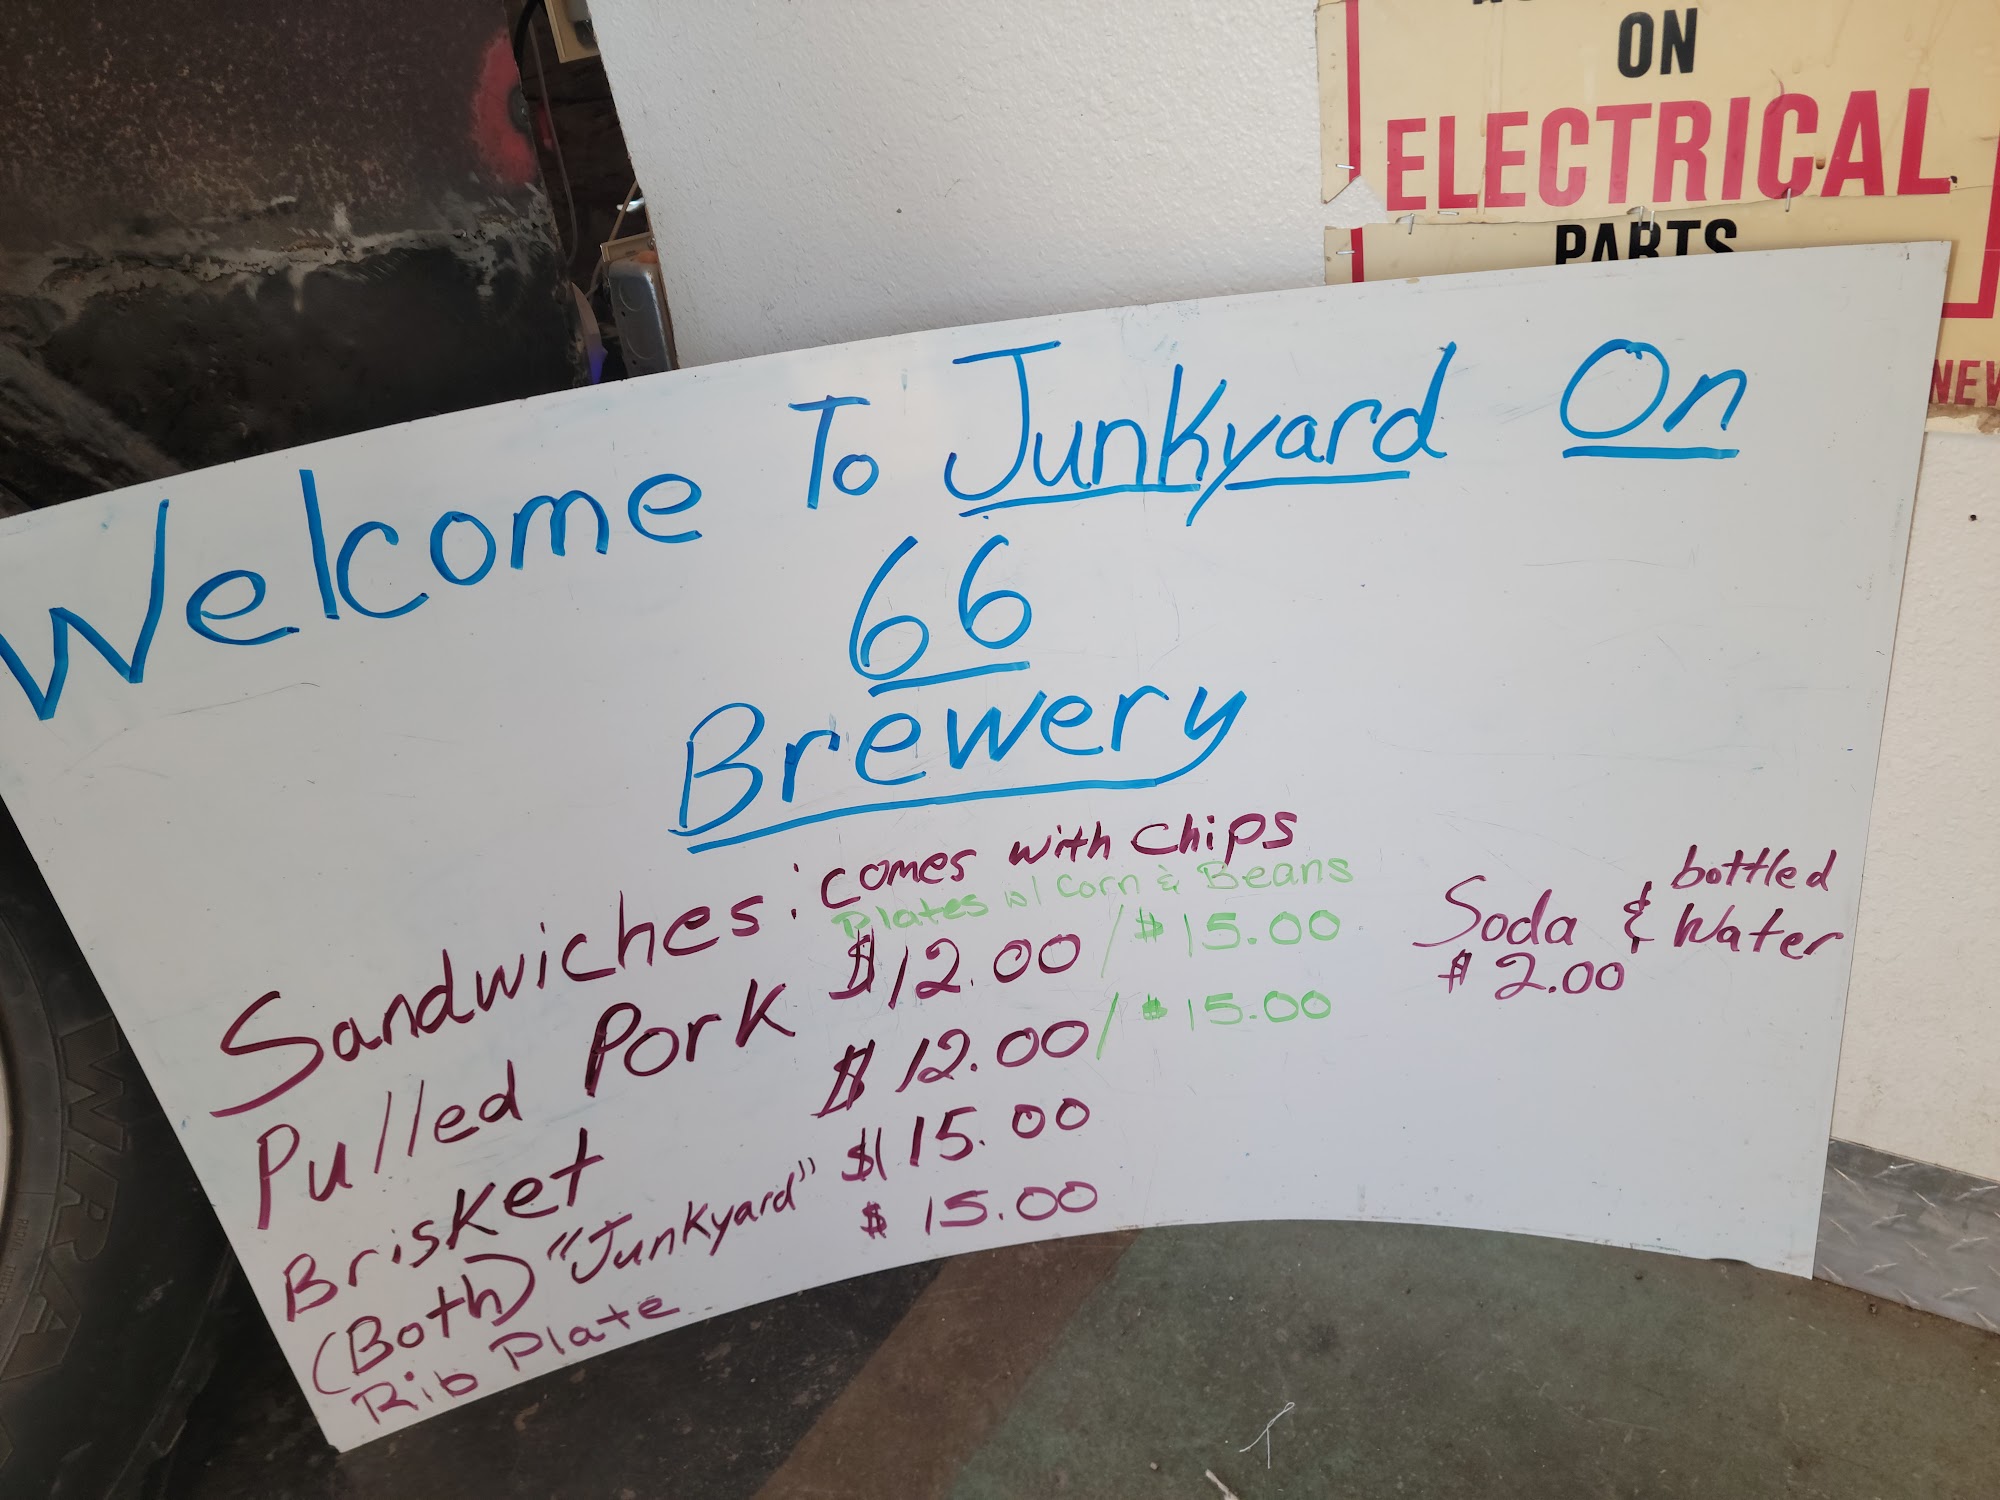 ON
ELECTRICAL
PARTS
NEW
Welcome To Junkyard On
66
Brewery
Sandwiches: comes with chips
Plates w/ Corn & Beans
Pulled Pork $12.00 / $15.00
Brisket $12.00 / $15.00
(Both) "Junkyard" $15.00
Rib Plate $15.00
Soda & bottled Water
$2.00